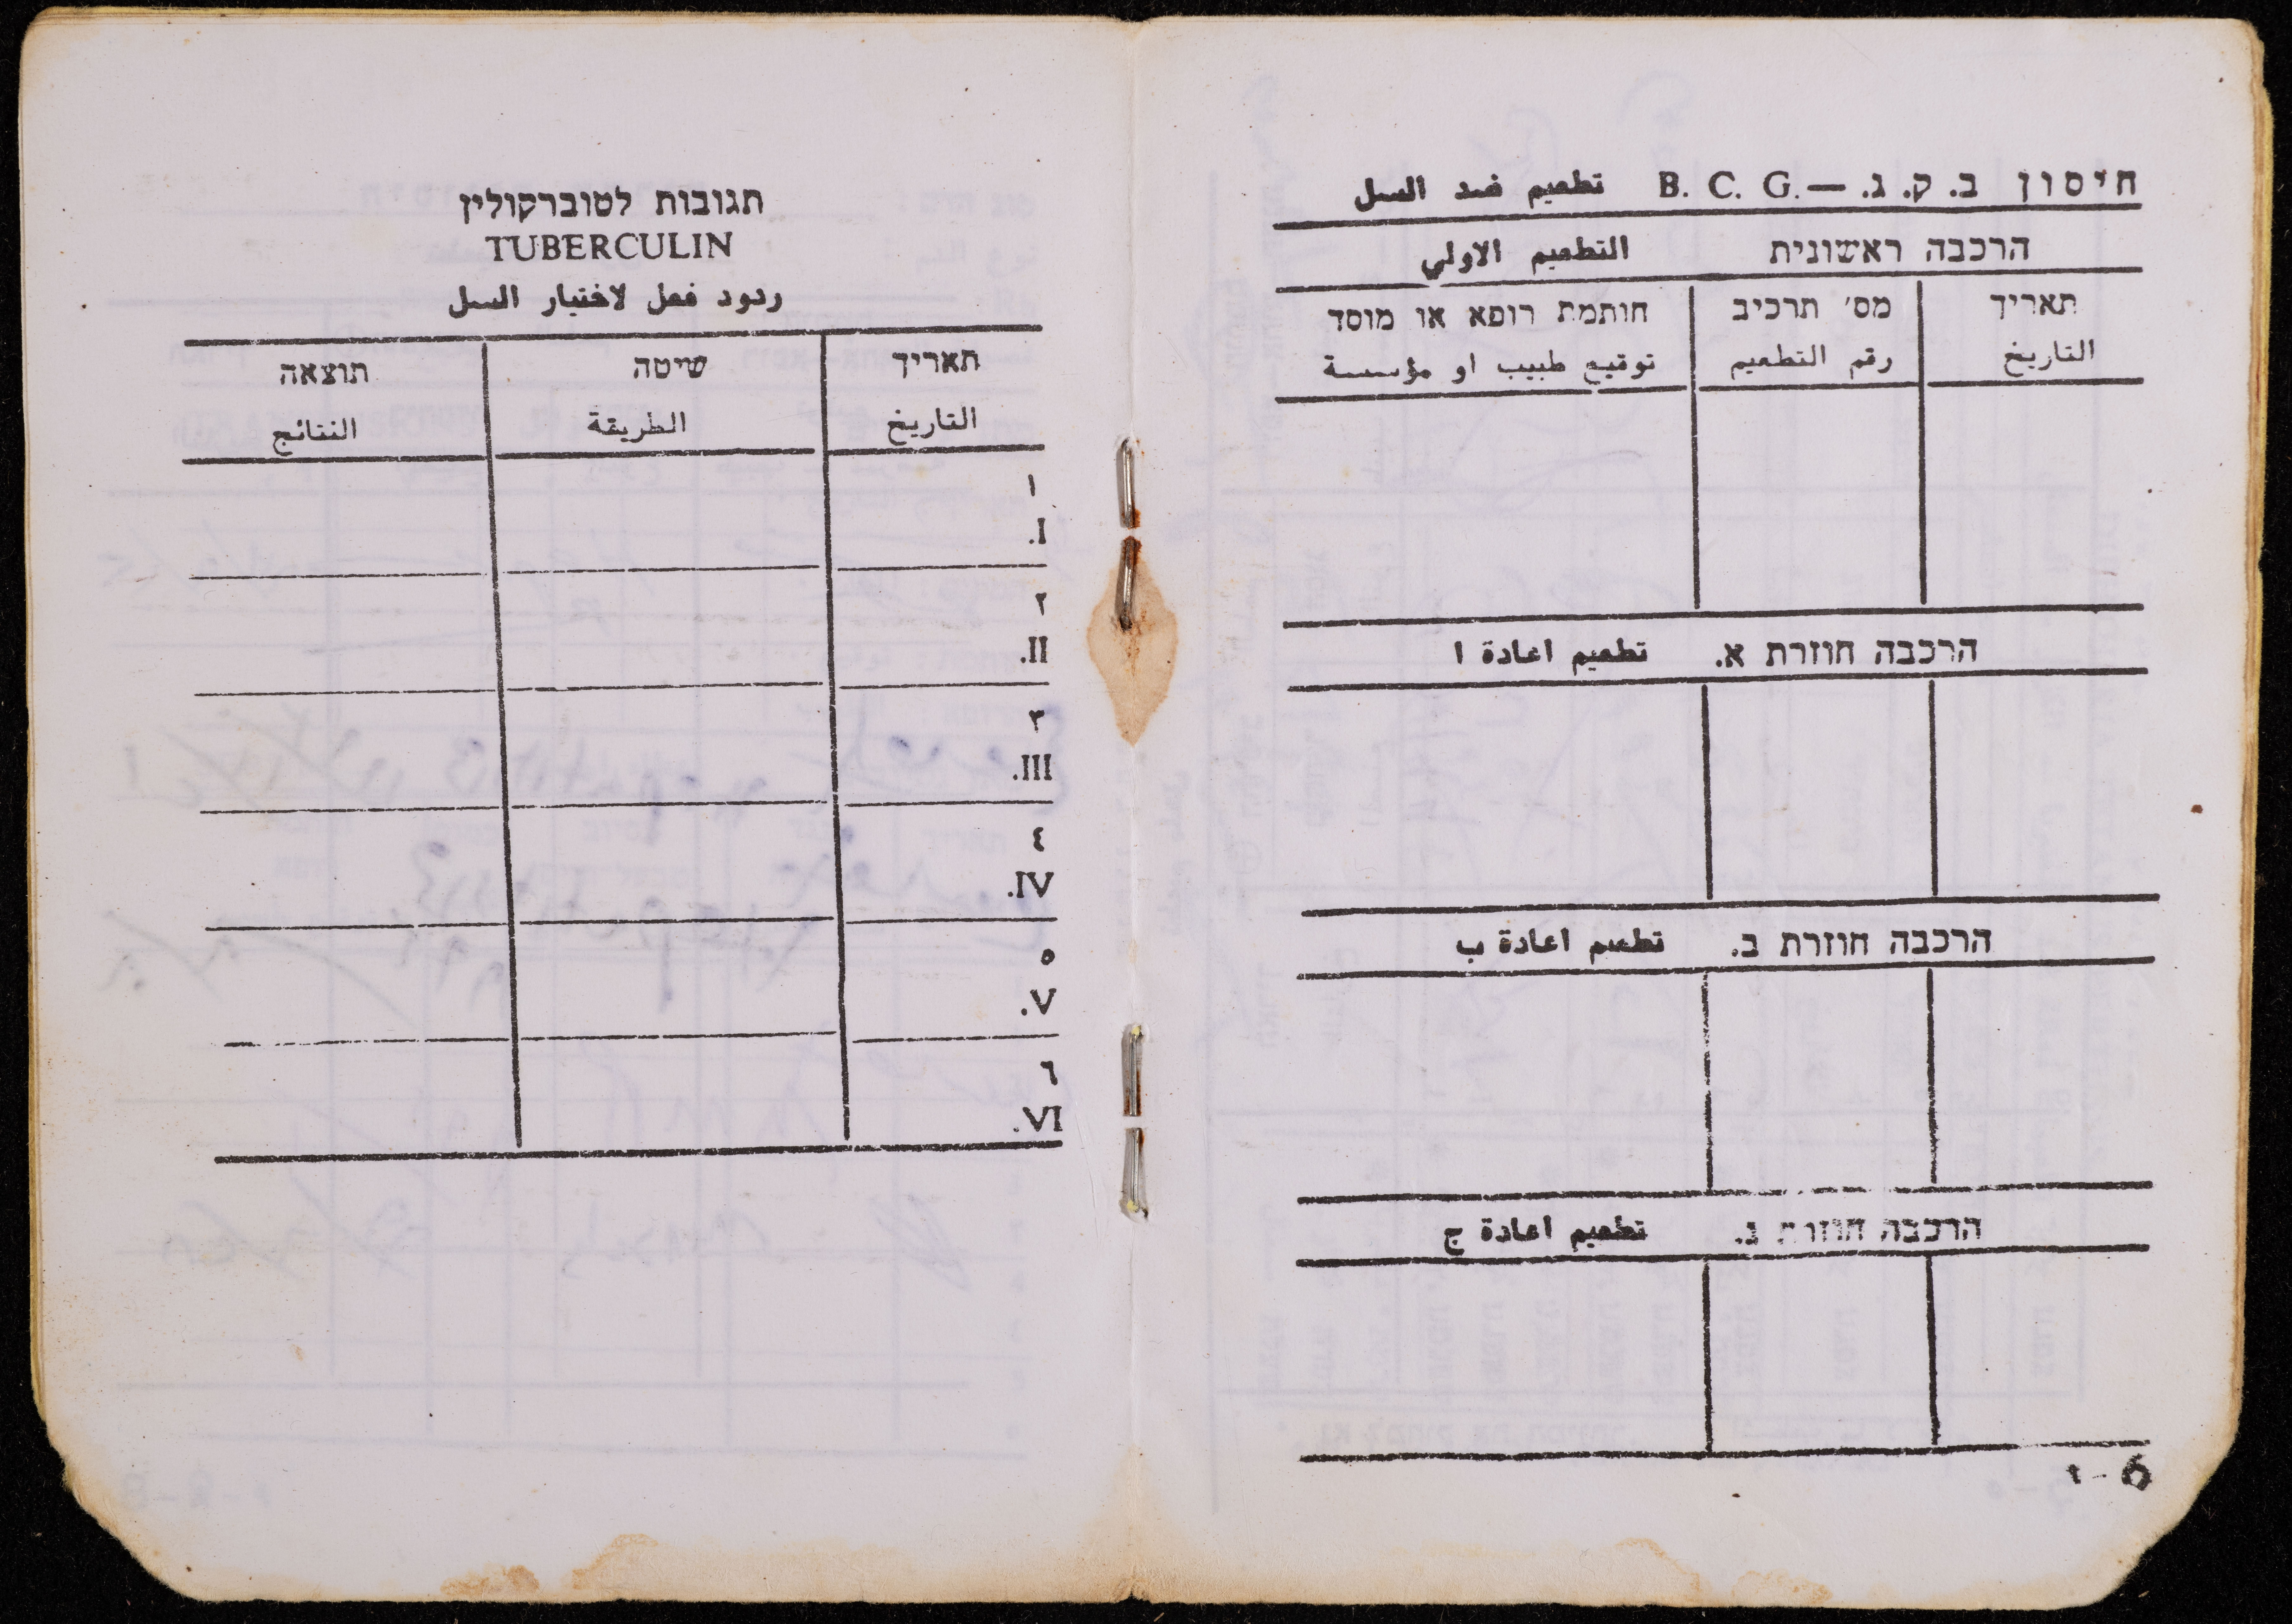 חיסון ב. ק. ג. — B. C. G. تطعيم ضد السل
הרכבה ראשונית التطعيم الاولي
תאריך מס׳ תרכיב חותמת רופא או מוסד
التاريخ رقم التطعيم توقيع طبيب او مؤسسة
הרכבה חוזרת א. تطعيم اعادة ا
הרכבה חוזרת ב. تطعيم اعادة ب
הרכבה חוזרת ג. تطعيم اعادة ج
6 - ٦
תגובות לטוברקולין
TUBERCULIN
ردود فعل لاختبار السل
תאריך שיטה תוצאה
التاريخ الطريقة النتائج
١
I.
٢
II.
٣
III.
٤
IV.
٥
V.
٦
VI.